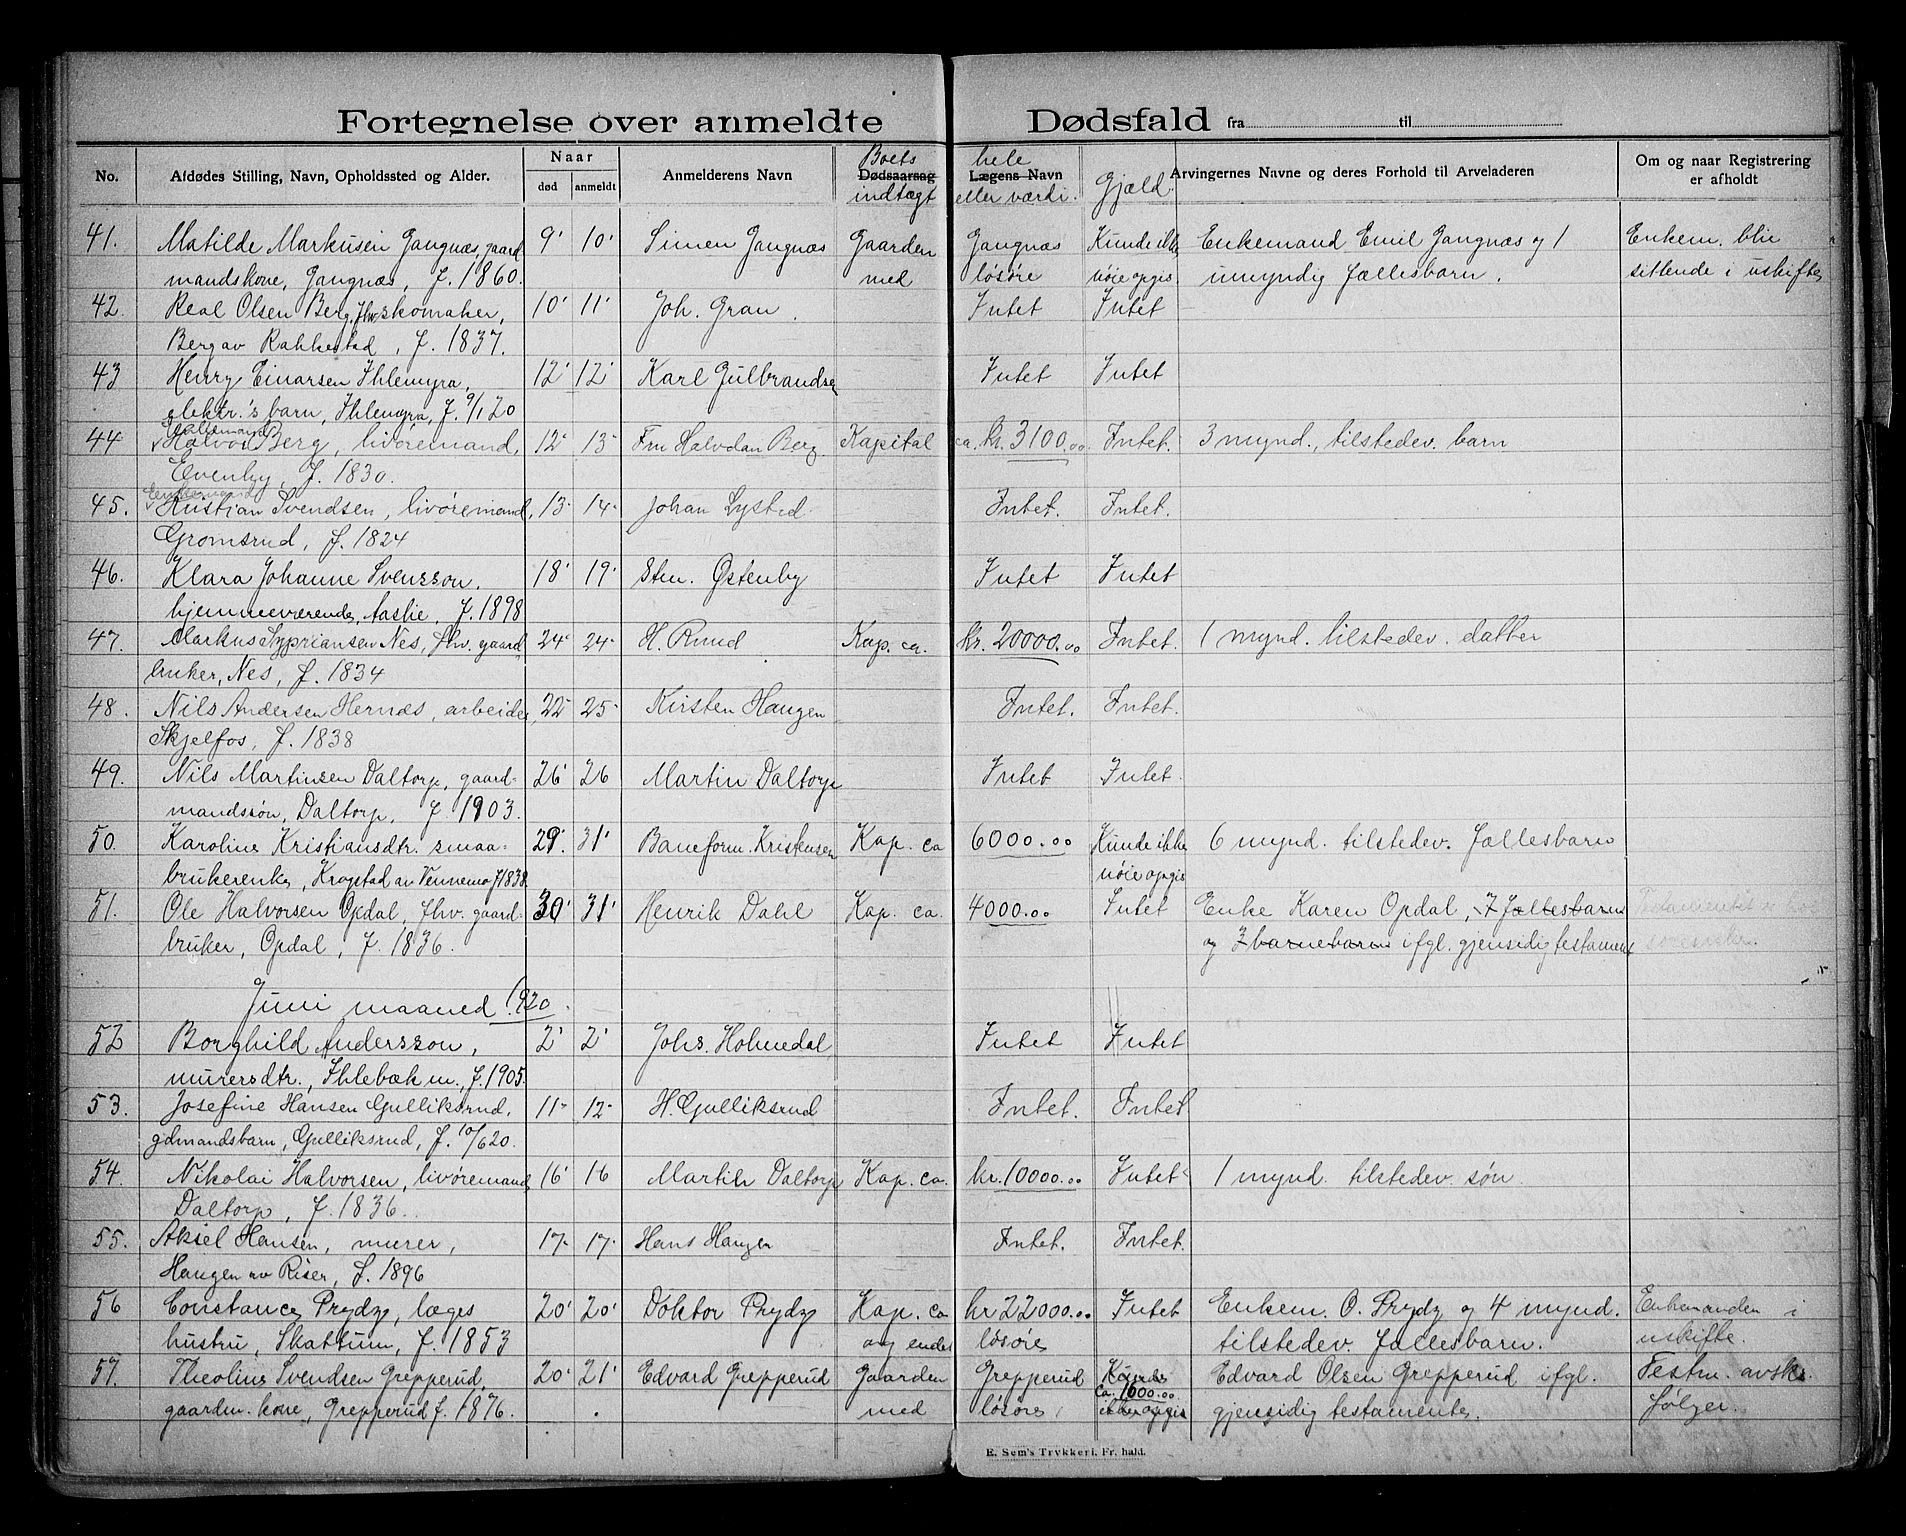 Fortegnelse over anmeldte Dødsfald fra til
No. Afdødes Stilling, Navn, Opholdssted og Alder. Naar død anmeldt Anmelderens Navn Dødsaarsag Boets indtægt Lægens Navn hele eller værdi. Gjæld Arvingernes Navne og deres Forhold til Arveladeren Om og naar Registrering er afholdt
41. Matilde Markusen Gangnæs, gaard- 9' 10' Simen Gangnæs Gaarden Gangnæs Kunde ikke Enkemand Emil Gangnæs og 1 Enkem. blir
mandskone, Gangnæs, f. 1860. med løsøre nøie opgis umyndig fællesbarn. sittende i uskifte
42. Real Olsen Berg, fhv. skomaker, 10' 11' Joh. Gran. Intet Intet
Berg av Rakkestad, f. 1837.
43 Henry Einarsen Ihlemyra, 12' 12' Karl Gulbrandsen Intet Intet
elektr.'s barn, Ihlemyra, f. 9/1 20
44 Halvor Berg, livøremand, 12- 13- Fru Halvdan Berg Kapital ca. kr. 3100.00 Intet. 3 mynd. tilstedev. barn
Evenby, f. 1830.
45. Enkemand
Kristian Svendsen, livøremand, 13- 14- Johan Lysted Intet. Intet.
Gromsrud, f. 1824
46. Klara Johanne Svensson, 18' 19' Sten. Østenby Intet Intet
hjemmeværende, Aaslie, f. 1898
47. Markus Sypriansen Nes, fhv. gaard- 24- 24- H. Ruud Kap. ca. kr. 20000.00 Intet. 1 mynd. tilstedev. datter
bruker, Nes, f. 1834
48. Nils Andersen Hernæs, arbeider, 22- 25- Kirsten Haugen Intet. Intet.
Skjelfos, f. 1838
49. Nils Martinsen Daltorp, gaard- 26' 26 Martin Daltorp Intet Intet.
mandssøn, Daltorp, f. 1903.
50. Karoline Kristiansdtr. smaa- 29' 31' Baneform. Kristensen Kap. ca 6000.00 Kunde ikke 6 mynd. tilstedev. fællesbarn
brukerenke, Krogstad av Vennemo f 1838. nøie opgis
51. Ole Halvorsen Opdal, fhv. gaard- 30' 31' Henrik Dahl Kap. ca. 4000.00 Intet Enke Karen Opdal, 7 fællesbarn
bruker, Opdal, f. 1836. og 3 barnebarn ifgl. gjensidig testament
Juni maaned 1920.
52 Borghild Andersson, 2' 2' Johs. Holmedal Intet Intet
murersdtr., Ihlebæk m., f. 1905.
53. Josefine Hansen Gulliksrud, 11- 12- H. Gulliksrud Intet. Intet
gdmandsbarn, Gulliksrud, f. 10/6 20.
54. Nikolai Halvorsen, livøremand, 16' 16 Martin Daltorp Kap. ca. kr. 10000.00 Intet 1 mynd. tilstedev. søn.
Daltorp, f. 1836.
55. Aksel Hansen, murer, 17- 17- Hans Haugen Intet. Intet.
Haugen av Riser, f. 1896
56 Constance Prydz, læges 20' 20' Doktor Prydz Kap. ca kr 22000.00 Intet Enkem. O. Prydz og 4 mynd. Enkemanden i
hustru, Skattum, f. 1853 og endel løsøre tilstedev. fællesbarn. uskifte.
57. Theoline Svendsen Grepperud, 20' 21' Edvard Grepperud Gaarden Grepperud Kunde Edvard Olsen Grepperud ifgl. Testm. avskr.
gaardm. kone, Grepperud f. 1876. med løsøre ca. 1600.00 ikke opgis gjensidig testamente. følger.
E. Sem's Trykkeri, Fr. hald.